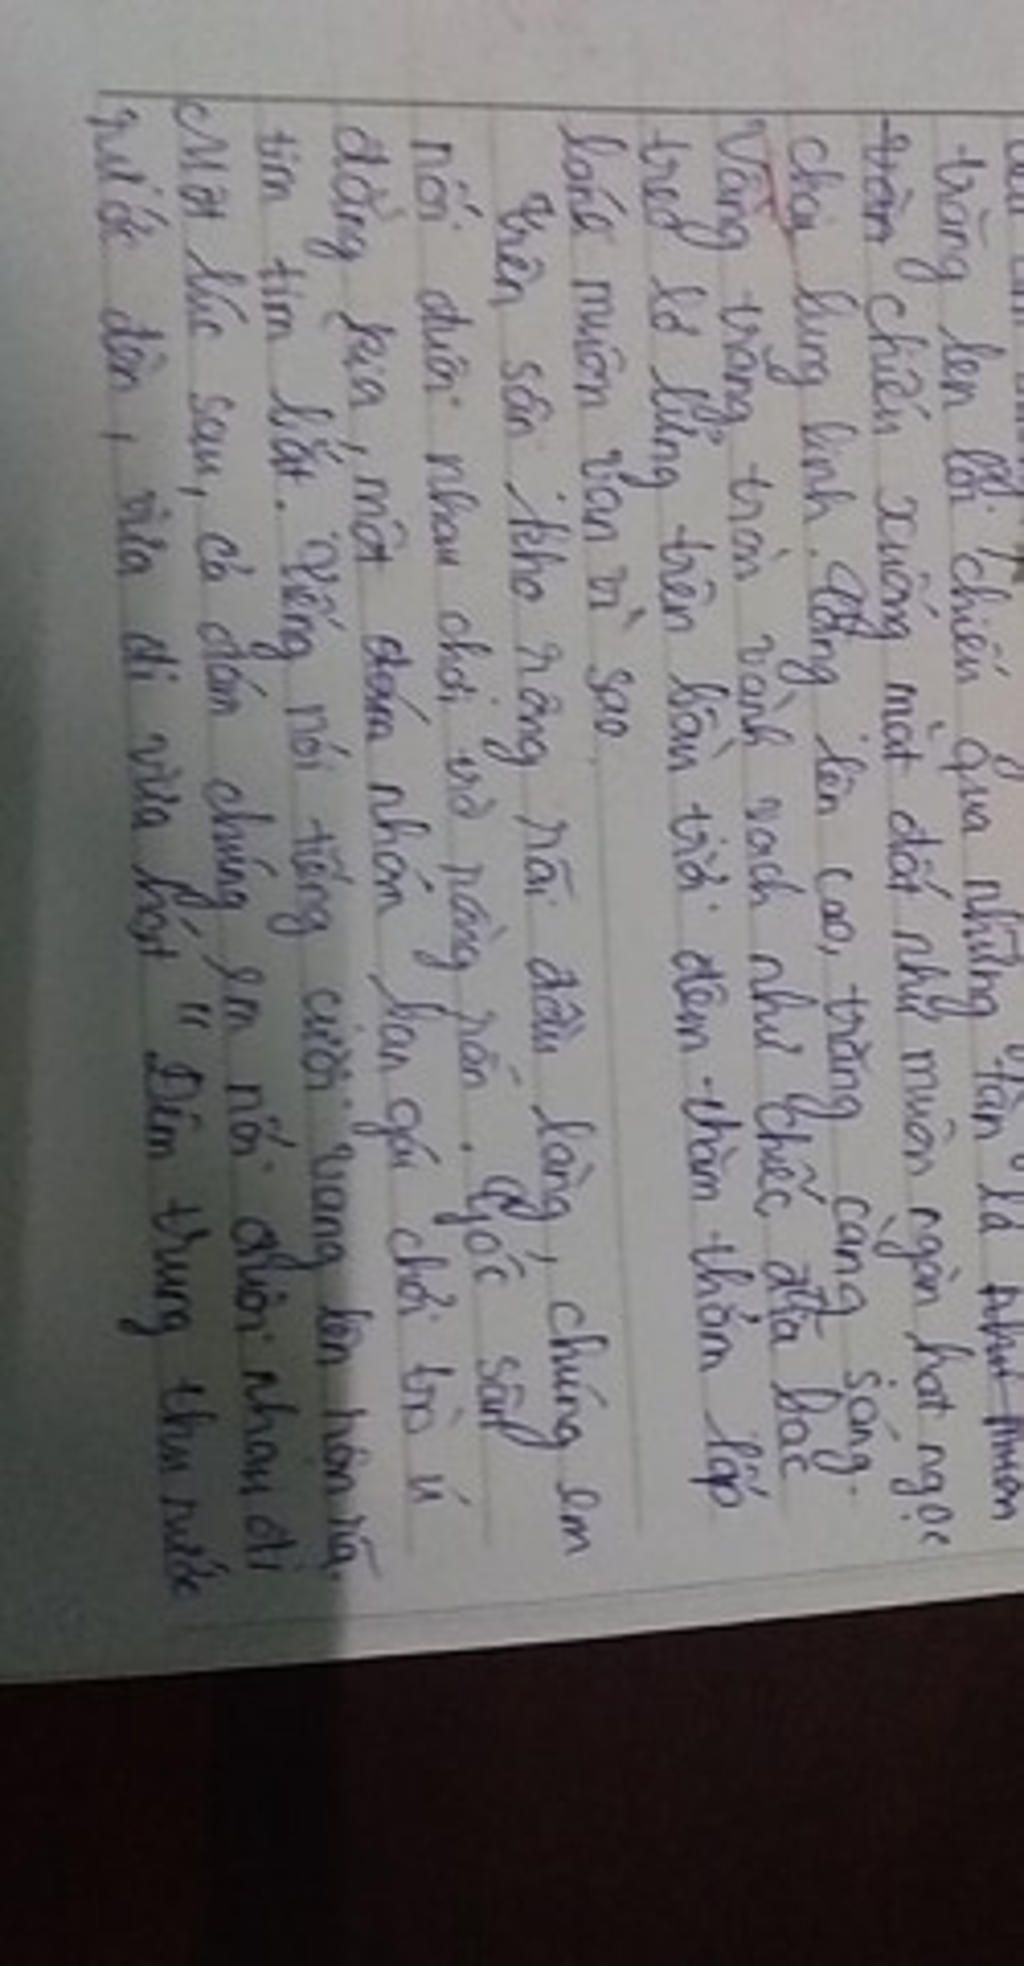 trăng len lỏi chiếu qua những tán lá
chiếu xuống mặt đất như muôn ngàn hạt ngọc
chai lung linh. Càng lên cao, trăng càng sáng.
Vầng trăng tròn vành vạch như chiếc đĩa bạc
treo lơ lửng trên bầu trời đêm thăm thẳm lấp
lánh muôn vàn vì sao.
Trên sân kho rộng rãi đầu làng, chúng em
nối đuôi nhau chơi trò rồng rắn. Góc sân
đằng kia, một đám nhóm bạn gái chơi trò ú
tim tìm bắt. Tiếng nói tiếng cười vang lên rộn rã.
Một lúc sau, cả đám chúng em nối đuôi nhau đi
rước đèn, vừa đi vừa hát "Đêm trung thu rước